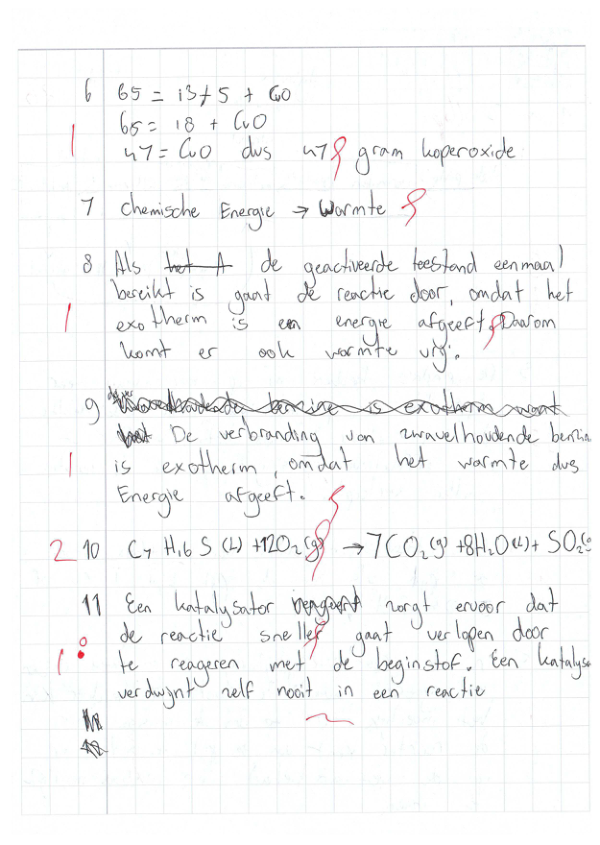 6 65 = 13+5 + CuO
65 = 18 + CuO
1 47 = CuO dus 47 gram koperoxide
7 Chemische Energie → Warmte
8 Als de geactiveerde toestand eenmaal
bereikt is gaat de reactie door, omdat het
1 exotherm is en energie afgeeft. Daarom
komt er ook warmte vrij.
9
De verbranding van zwavelhoudende benzin
1 is exotherm, omdat het warmte dus
Energie afgeeft.
2 10 C7 H16 S (L) +12O2 (g) → 7CO2 (g) +8H2O (L) + SO2 (g
11 Een katalysator zorgt ervoor dat
de reactie sneller gaat verlopen door
1 te reageren met de beginstof. Een katalysa
verdwijnt zelf nooit in een reactie